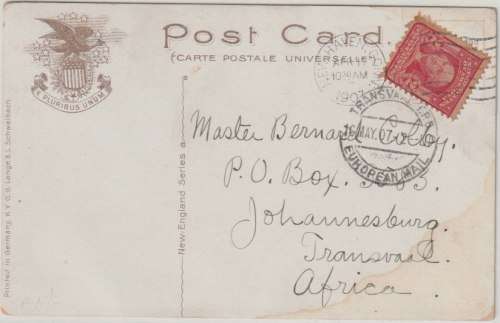 Post Card.
(CARTE POSTALE UNIVERSELLE)
E PLURIBUS UNUM
1907
10 30 AM
TRANSVAAL
MAY 07
EUROPEAN MAIL
Master Bernard Colby.
P. O. Box.
Johannesburg.
Transvaal.
Africa.
New-England Series
Printed in Germany.